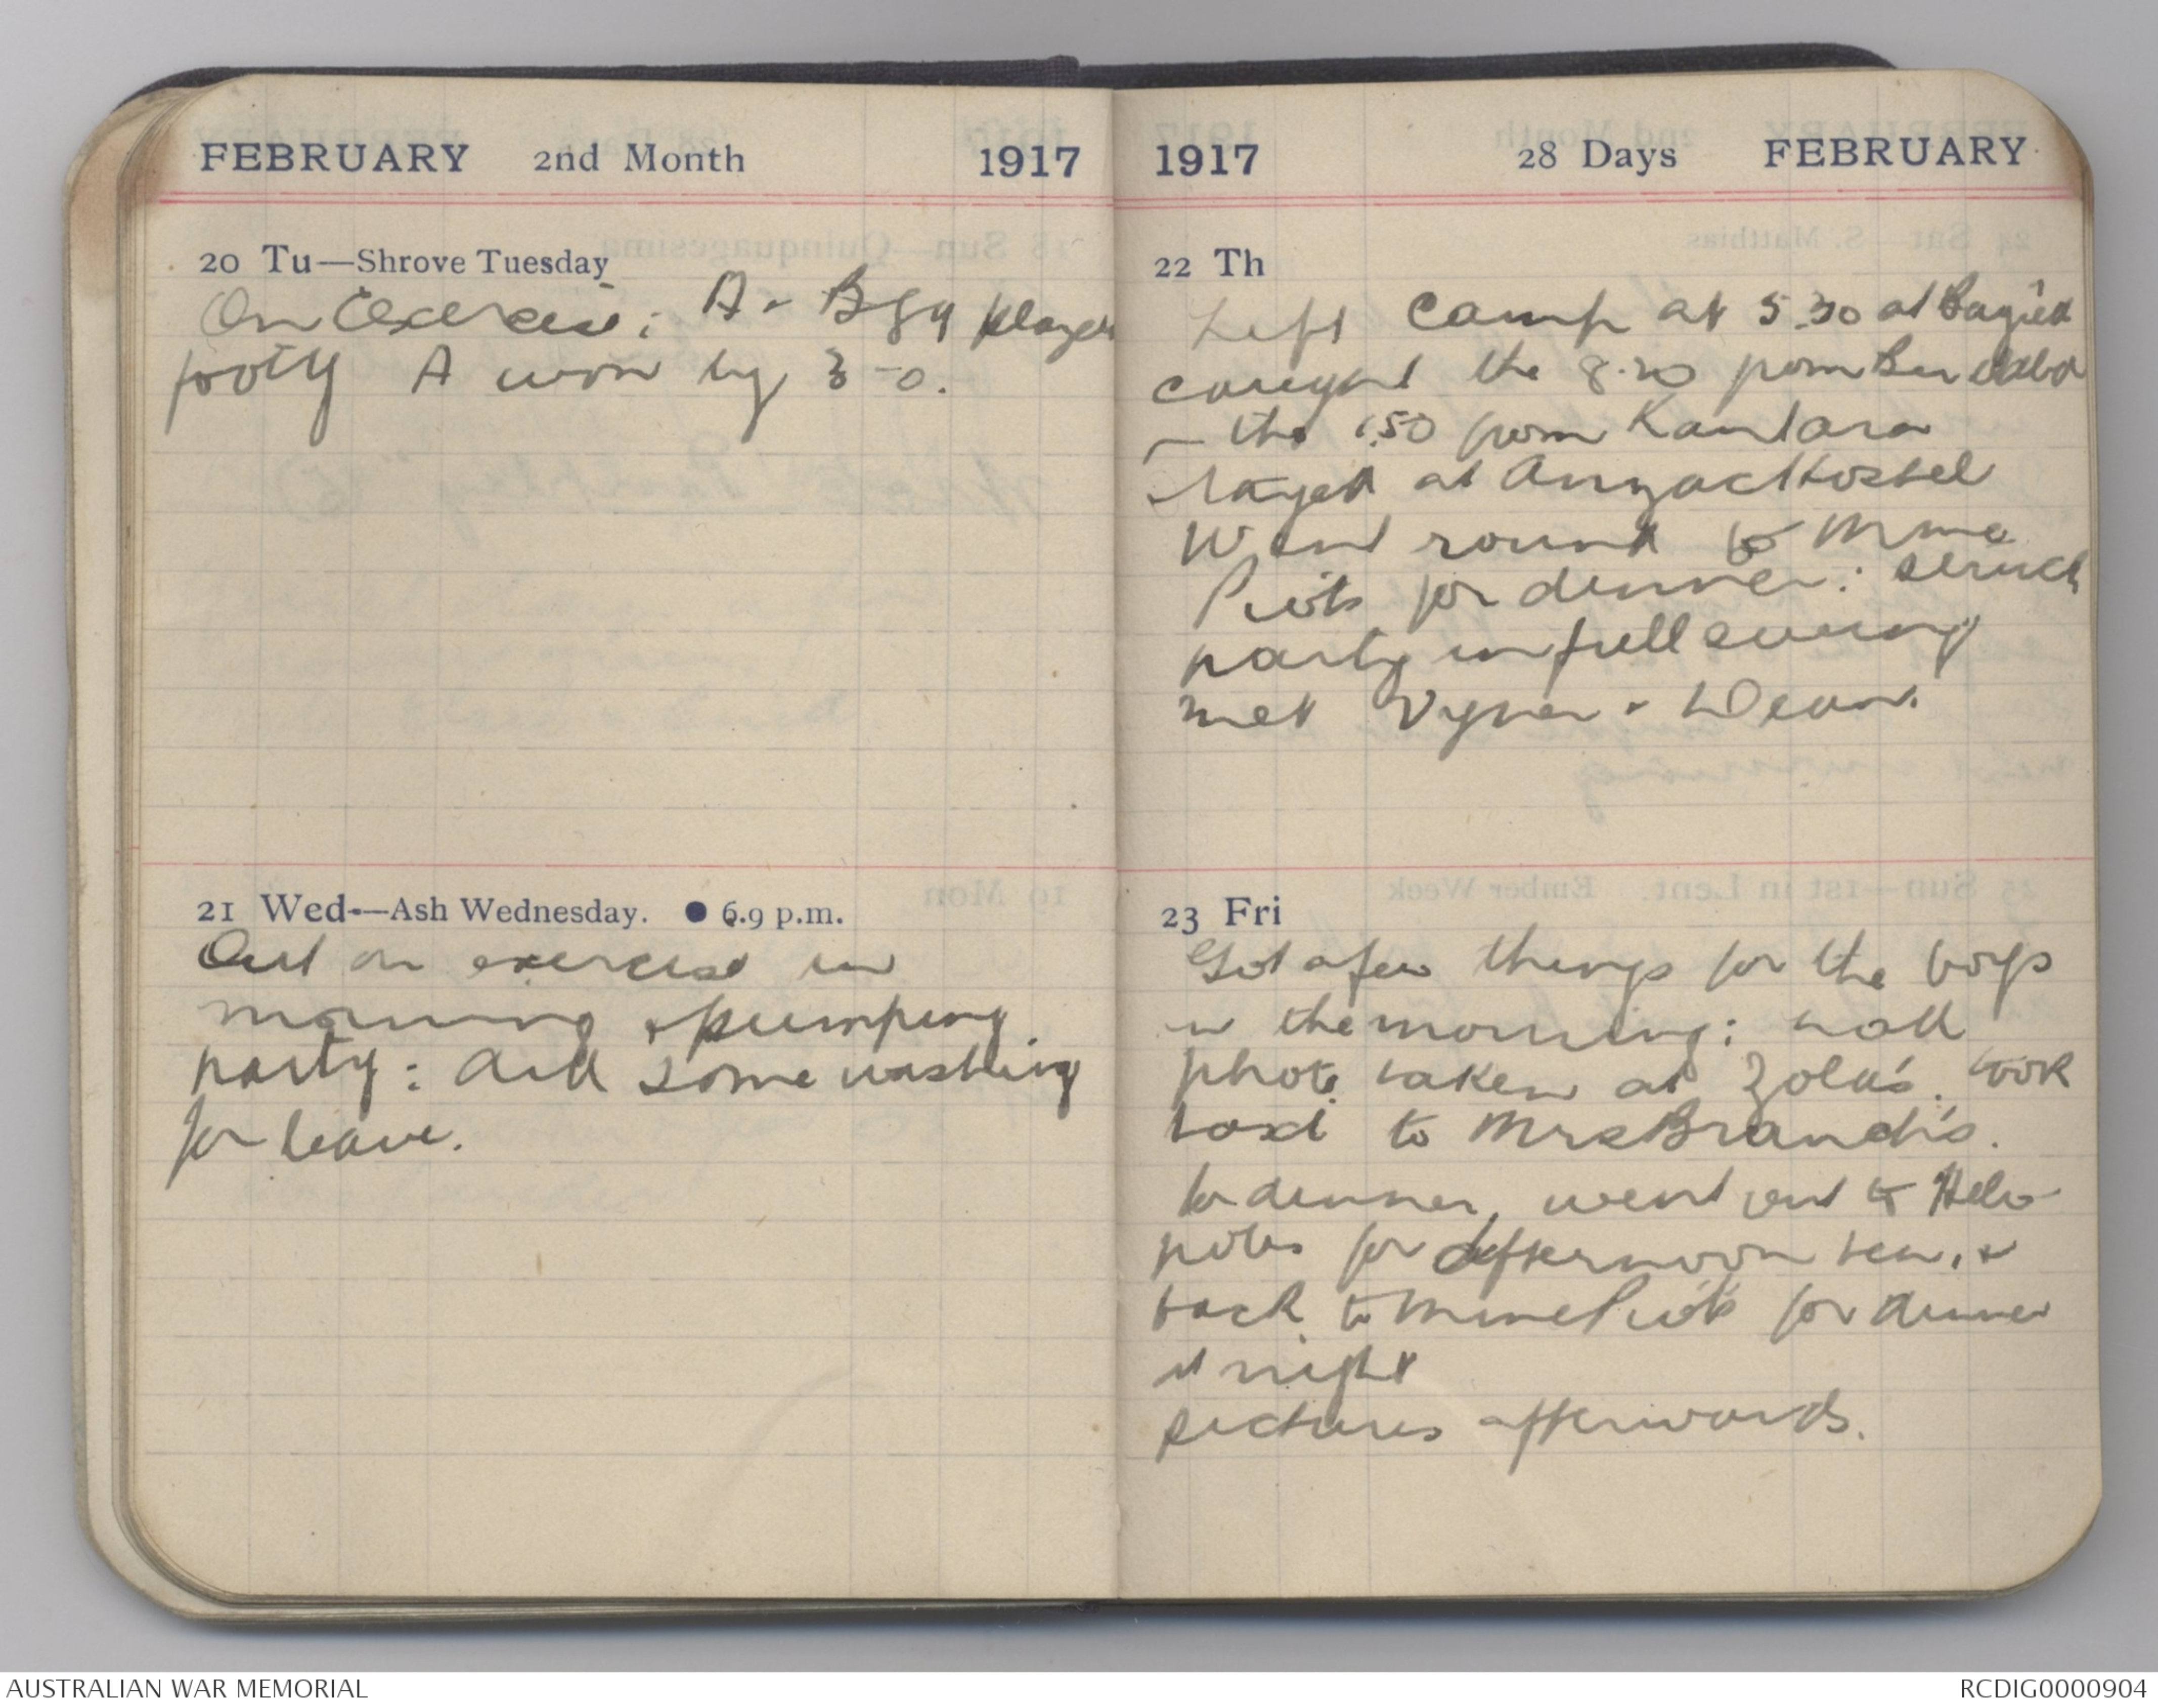 FEBRUARY 2nd Month 1917
20 Tu—Shrove Tuesday
On Exercise: A & B played
footy A won by 3-0.
21 Wed—Ash Wednesday. ● 6.9 p.m.
Out on exercise in
morning & pumping
party: did some washing
for leave.
1917 28 Days FEBRUARY
22 Th
Left camp at 5.30 at
caught the 8.20 from
the 1.50 from Kantara
stayed at Anzac Hostel
Went round to Mme
for dinner: struck
party in full swing
met & Dean.
23 Fri
Got a few things for the boys
in the morning: had
photo taken at Zola's. took
taxi to Mrs Brand's.
to dinner, went out to Helio
polis for afternoon tea, &
back to Mme for dinner
at night
pictures afterwards.
AUSTRALIAN WAR MEMORIAL
RCDIG0000904